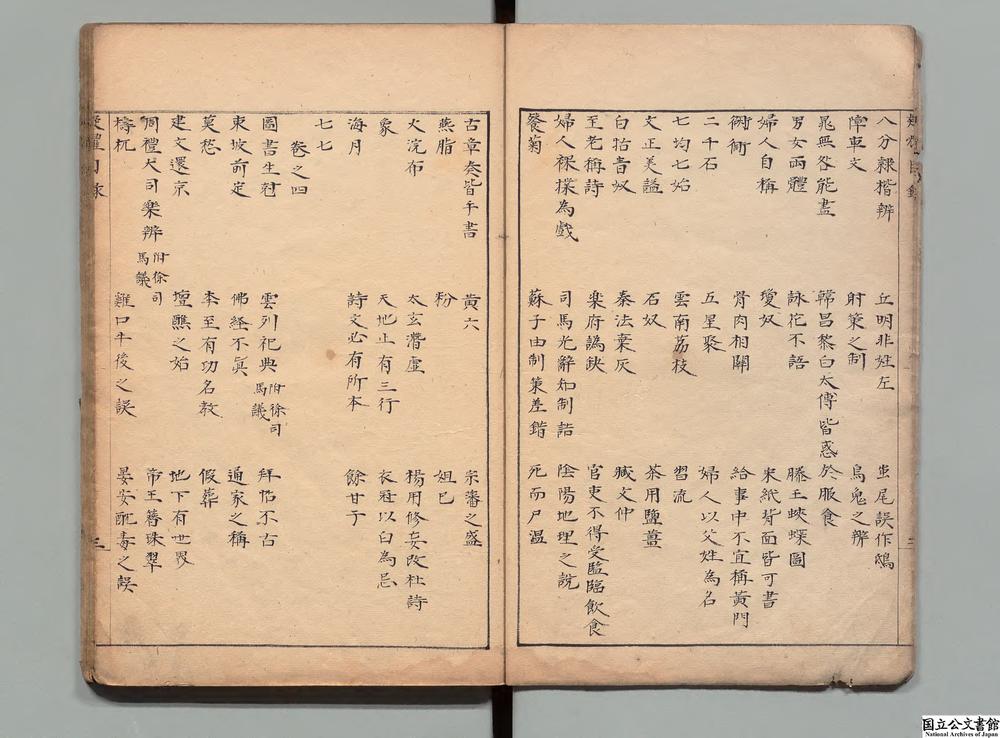 八分隸楷辨 丘明非姓左 蚩尾誤作鴟
障車文 射策之制 烏鬼之辨
晁無咎能畫 韓昌黎白太傅皆惑於服食
男女兩體 詠花不語 滕王蛺蝶圖
婦人自稱 瓊奴 宋紙背面皆可書
衚衕 骨肉相關 給事中不宜稱黃門
二千石 五星聚 婦人以父姓為名
七均七始 雲南荔枝 習流
文正美謚 石奴 茶用鹽薑
白牯青奴 秦法棄灰 臧文仲
至老稱詩 樂府譌缺 官吏不得受監臨飲食
婦人裸撲為戲 司馬光辭知制誥 陰陽地理之說
餐菊 蘇子由制策差錯 死而尸溫
古章奏皆手書 黃六 宗藩之盛
燕脂 粉 妲己
火浣布 太玄潛虛 楊用修妄改杜詩
象 天地止有三行 衣冠以白為忌
海月 詩文必有所本 餘甘子
七七
卷之四
圖書生尅 雲列祀典附徐司馬議 拜帖不古
東坡前定 佛經不眞 通家之稱
莫愁 李至有功名教 假葬
建文還京 壇醮之始 地下有世界
周禮大司樂辨附徐司馬議 帝王簪珠翠
檮杌 雞口牛後之誤 晏安酖毒之誤
国立公文書館
National Archives of Japan